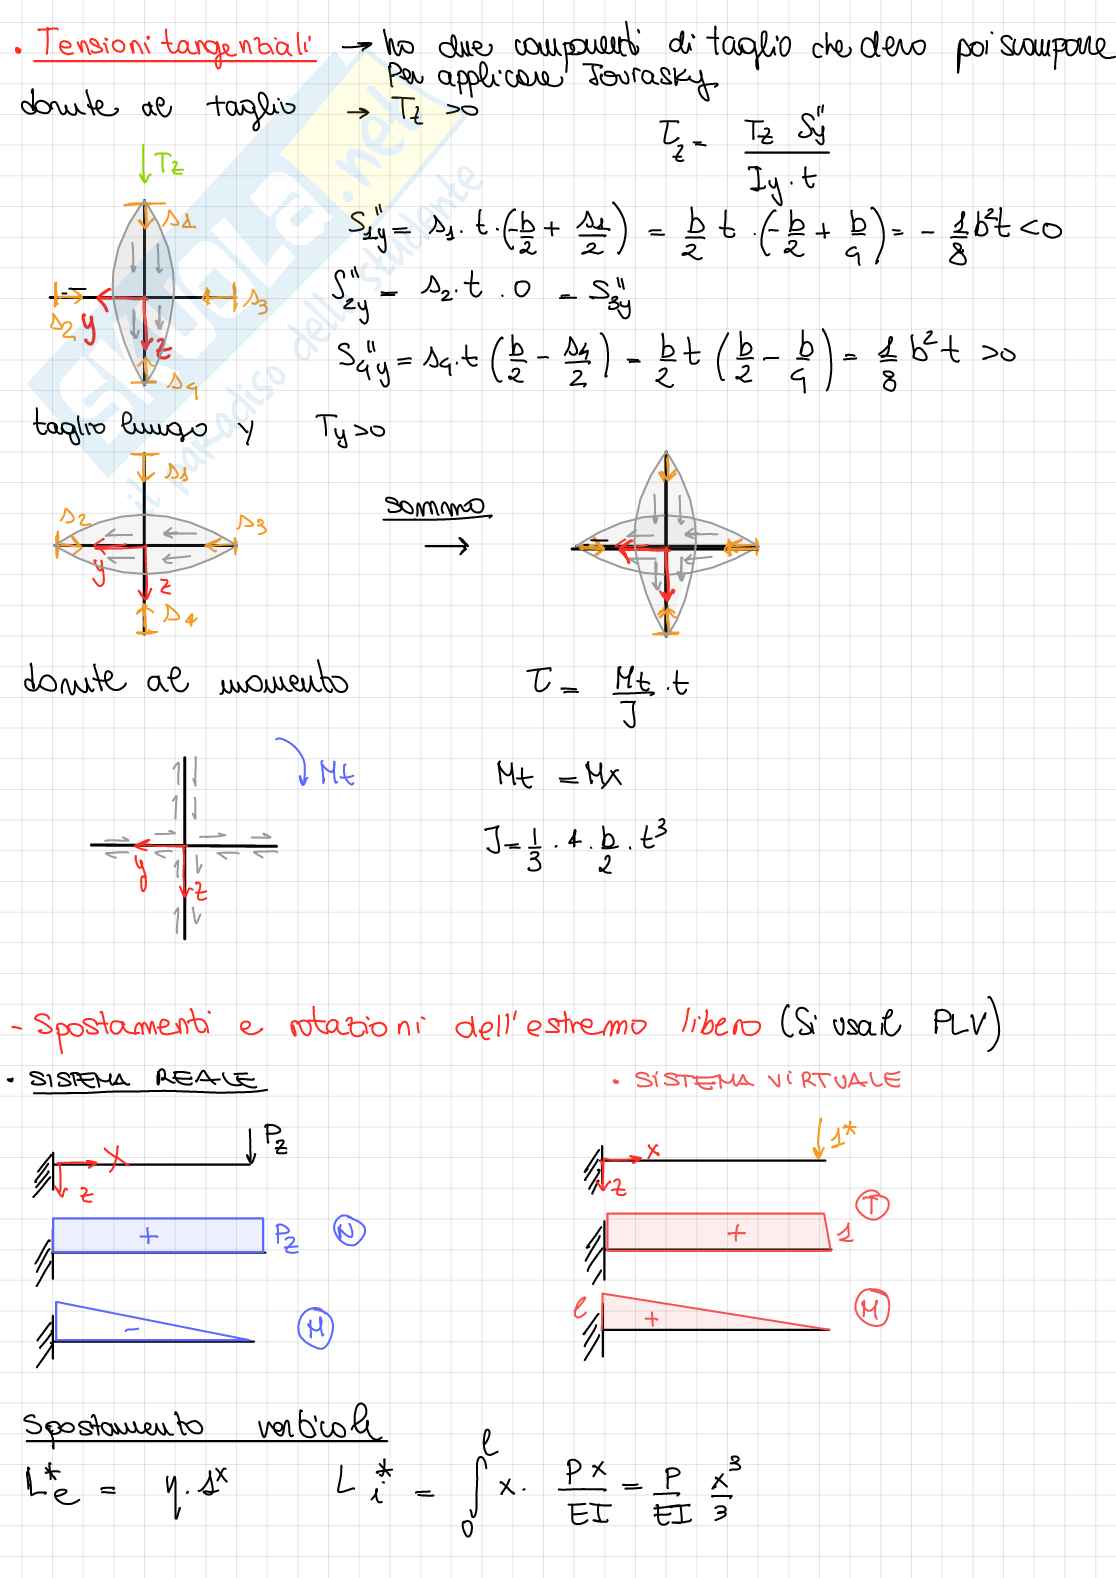 • Tensioni tangenziali → ho due componenti di taglio che devo poi scomporre
Per applicare Jourasky
dovute al taglio → Tz >0
τz = Tz Sy'' / Iy · t
Tz
s1
s2
s3
s4
y
z
S1y'' = s1 · t · (-b/2 + s1/2) = b/2 t · (-b/2 + b/4) = - 1/8 b²t <0
S2y'' = s2 · t · 0 = S3y''
S4y'' = s4 · t (b/2 - s4/2) = b/2 t (b/2 - b/4) = 1/8 b² t >0
taglio lungo y Ty>0
s1
s2
s3
s4
y
z
sommo →
dovute al momento
τ = Mt/J · t
Mt
y
z
Mt = Mx
J = 1/3 · 4 · b/2 · t³
- Spostamenti e rotazioni dell'estremo libero (Si usa il PLV)
• SISTEMA REALE
• SISTEMA VIRTUALE
Pz
x
z
1*
x
z
+ Pz N
+ 1 T
- M
l + M
Spostamento verticale
Le* = η · 1*
Li* = ∫0l x · Px/EI = P/EI x³/3
SKUOLA.net
il paradiso dello studente